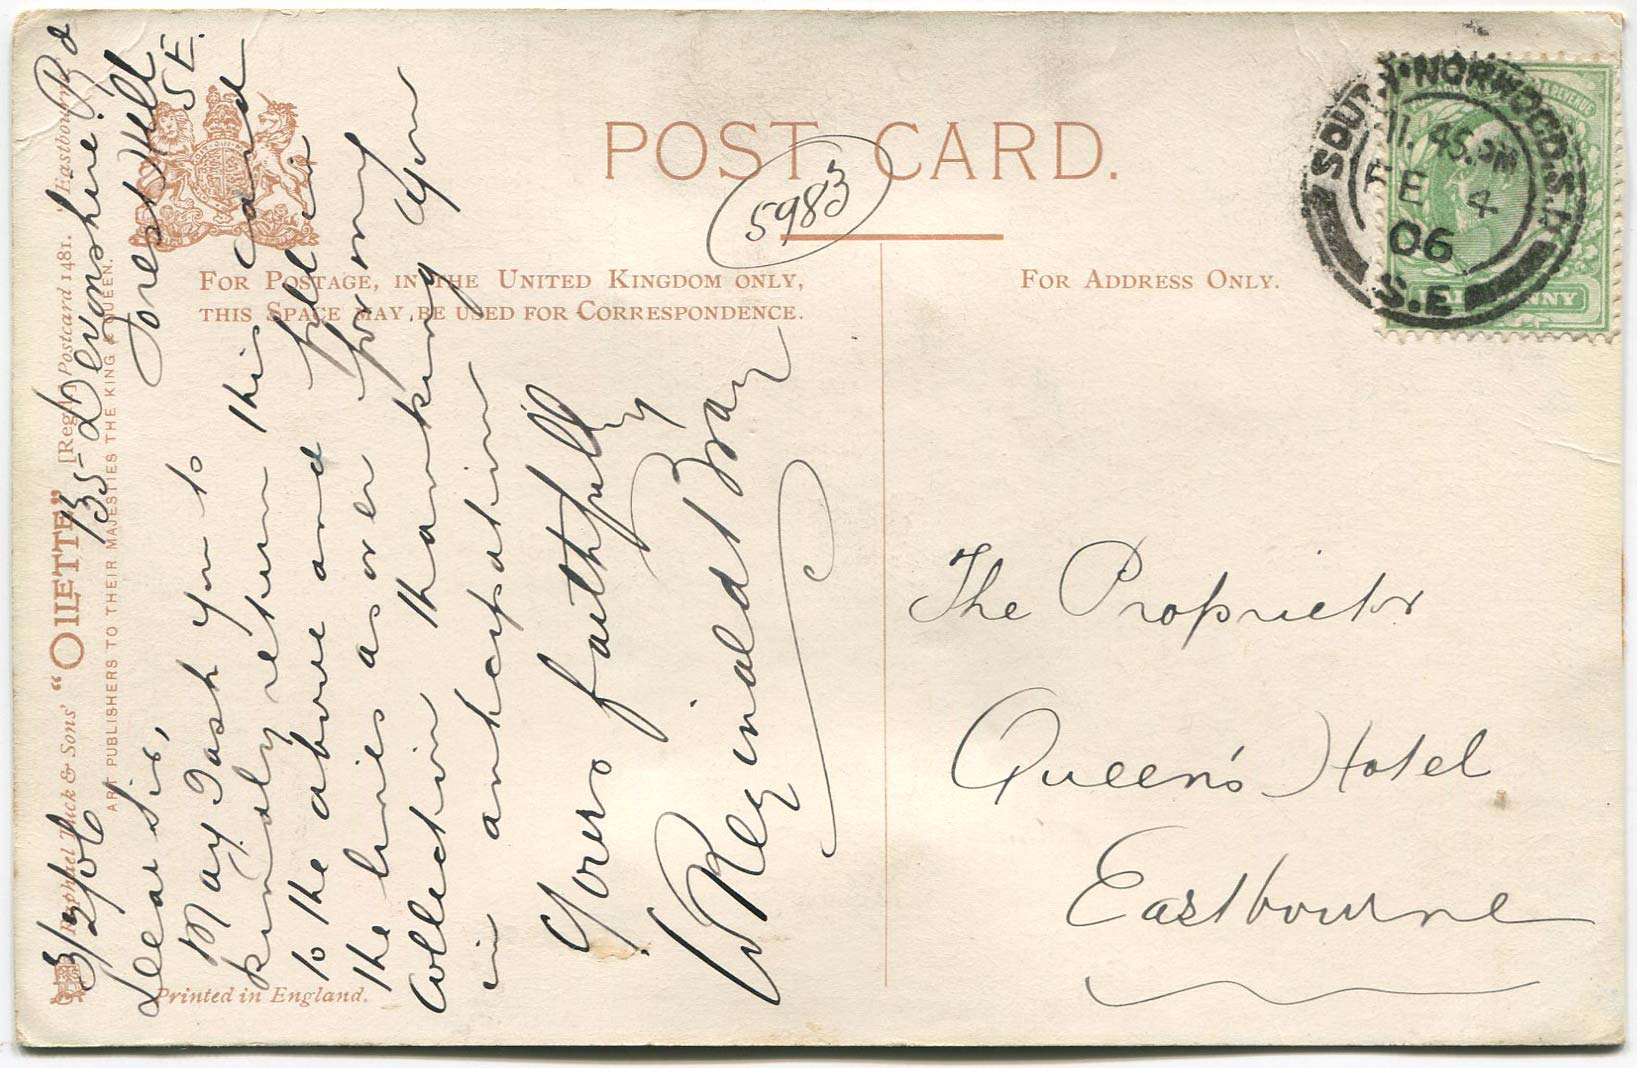 POST CARD.
5983
FOR POSTAGE, IN THE UNITED KINGDOM ONLY,
THIS SPACE MAY BE USED FOR CORRESPONDENCE.
FOR ADDRESS ONLY.
Raphael Tuck & Sons' "OILETTE" [Regd.] Postcard 1481. Eastbourne
ART PUBLISHERS TO THEIR MAJESTIES THE KING & QUEEN.
Printed in England.
135 Devonshire Rd
Forest Hill
S E.
3/2/06
Dear Sir,
May I ask you to
kindly return this card
to the above and place
the lines as over for my
collection thanking you
in anticipation
Yours faithfully
W Reginald Bray
The Proprietor
Queen's Hotel
Eastbourne
SOUTH NORWOOD. S.E
11.45.PM
FE 4
06
S.E